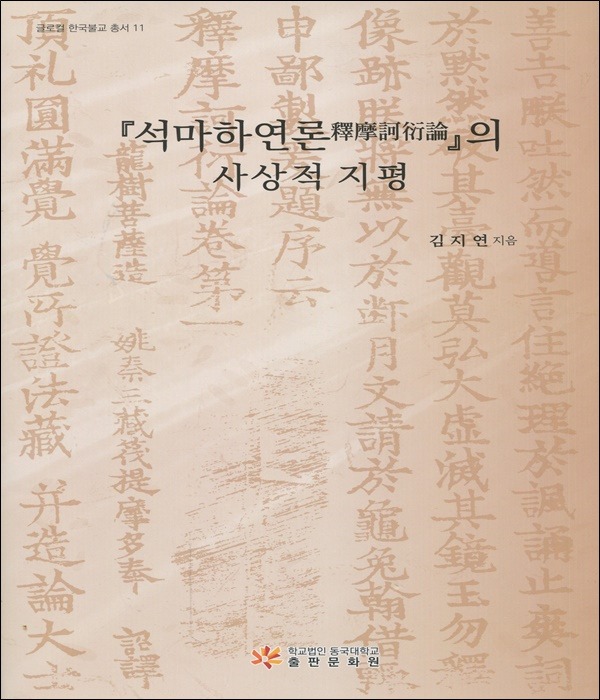 글로컬 한국불교 총서 11
『석마하연론釋摩訶衍論』의
사상적 지평
김지연 지음
善吉朕吐然而導言住絶理於諷誦止奭詞
於黙然
其喜觀莫弘大虛減其鏡玉勿釋
像跡朕
無以於断月文請於龜兔翰借
申鄙製
題序云
釋摩訶衍論卷第一
龍樹菩薩造
姚秦三藏筏提摩多奉
詔譯
頂礼圓滿覺
覺所證法藏
并造論大士
학교법인 동국대학교
출판문화원